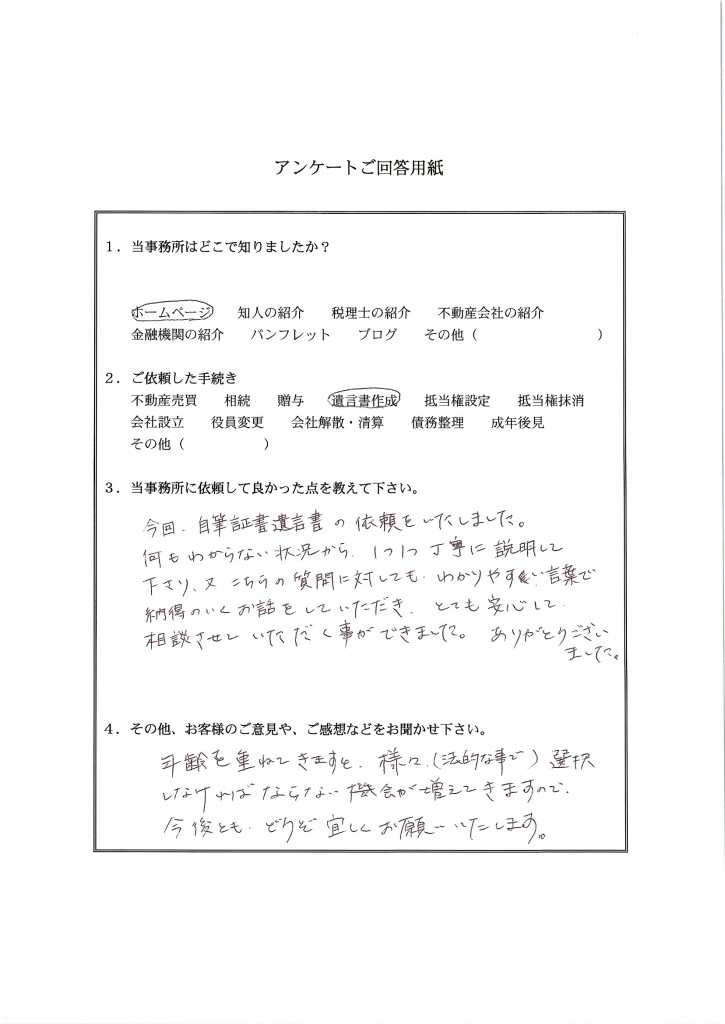 アンケートご回答用紙
１．当事務所はどこで知りましたか？
ホームページ　知人の紹介　税理士の紹介　不動産会社の紹介
金融機関の紹介　パンフレット　ブログ　その他（　　　　　　　　　）
２．ご依頼した手続き
不動産売買　相続　贈与　遺言書作成　抵当権設定　抵当権抹消
会社設立　役員変更　会社解散・清算　債務整理　成年後見
その他（　　　　　　）
３．当事務所に依頼して良かった点を教えて下さい。
今回、自筆証書遺言書の依頼をいたしました。
何もわからない状況から、1つ1つ丁寧に説明して
下さり、又こちらの質問に対しても、わかりやすい言葉で
納得のいくお話をしていただき、とても安心して
相談させていただく事ができました。ありがとうござい
ました。
４．その他、お客様のご意見や、ご感想などをお聞かせ下さい。
年齢を重ねてきますと、様々、（法的な事で）選択
しなければならない機会が増えてきますので、
今後とも、どうぞ宜しくお願いいたします。